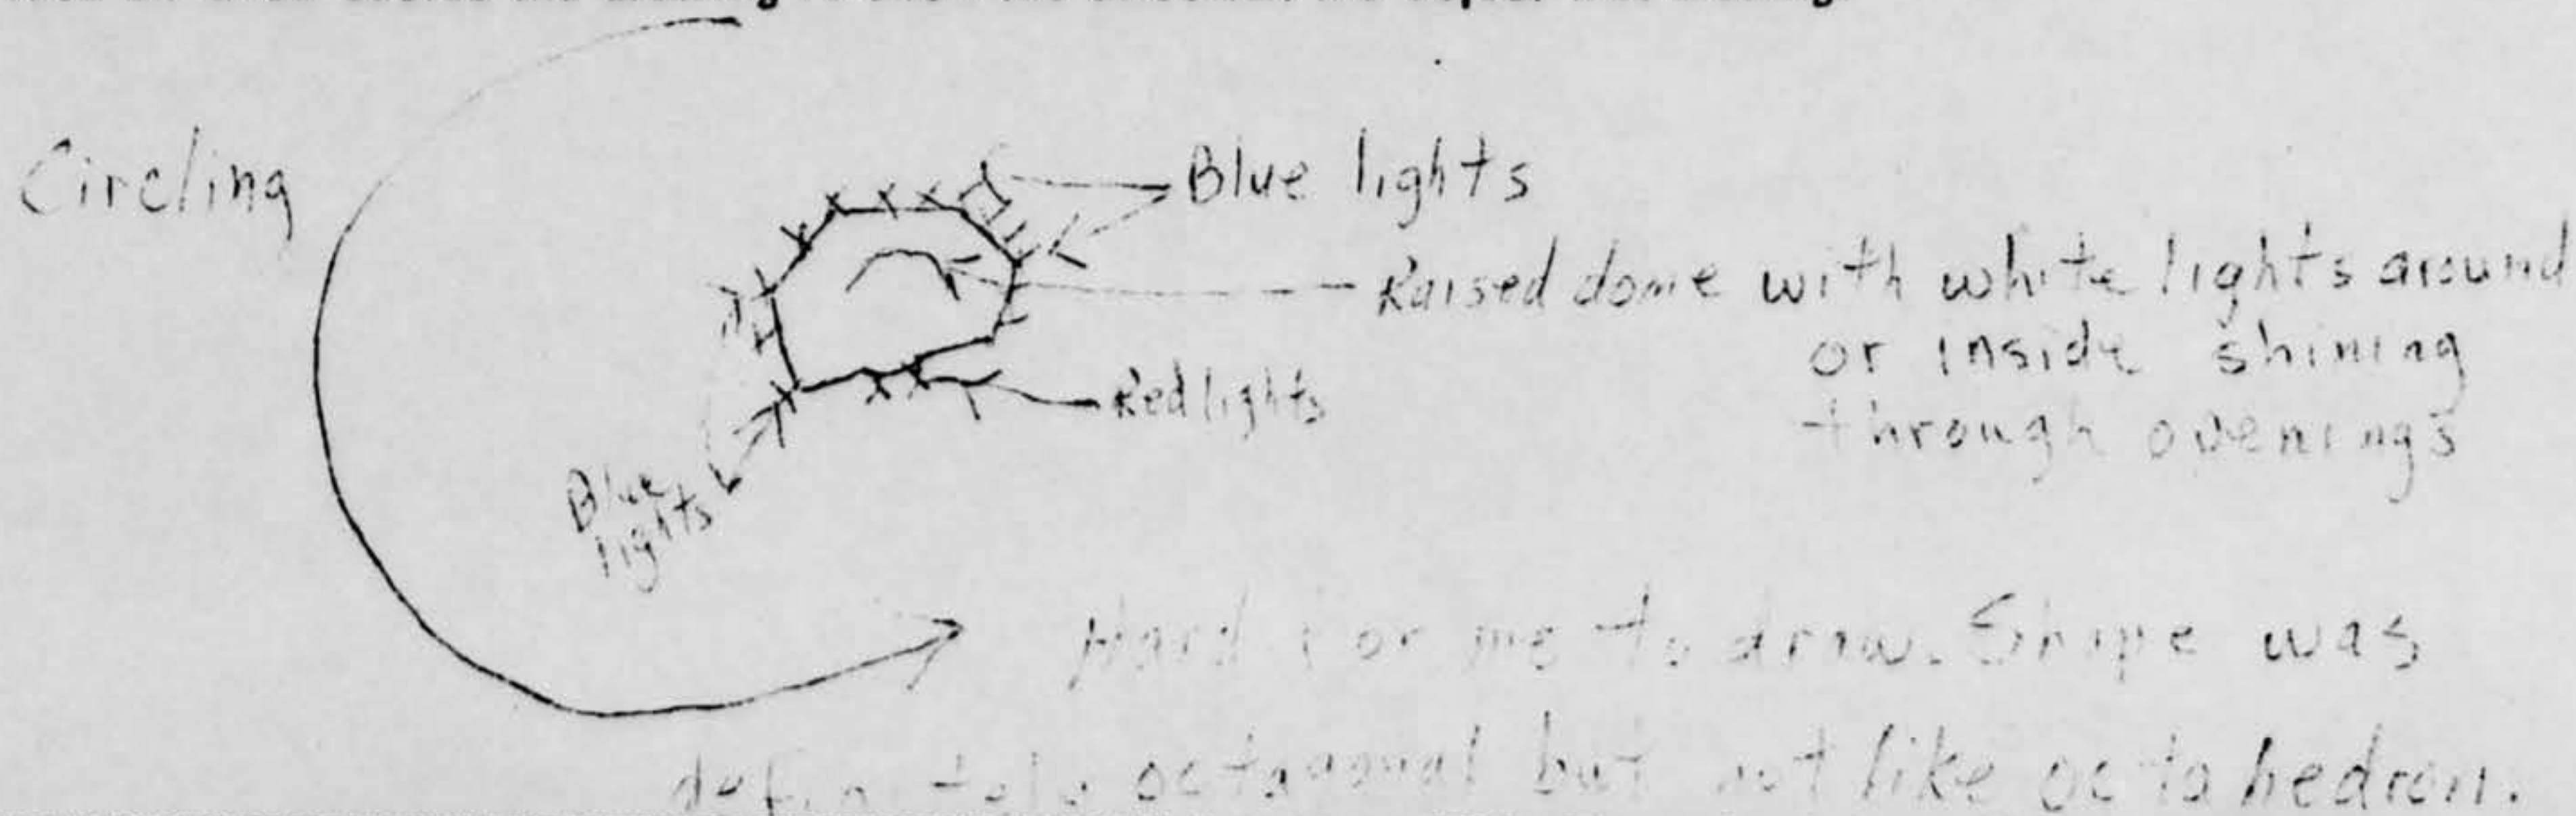 Circling
Blue lights
Raised dome with white lights around
or inside shining
through openings
Red lights
Blue
lights
Hard for me to draw. Shape was
definitely octagonal but not like octahedron.